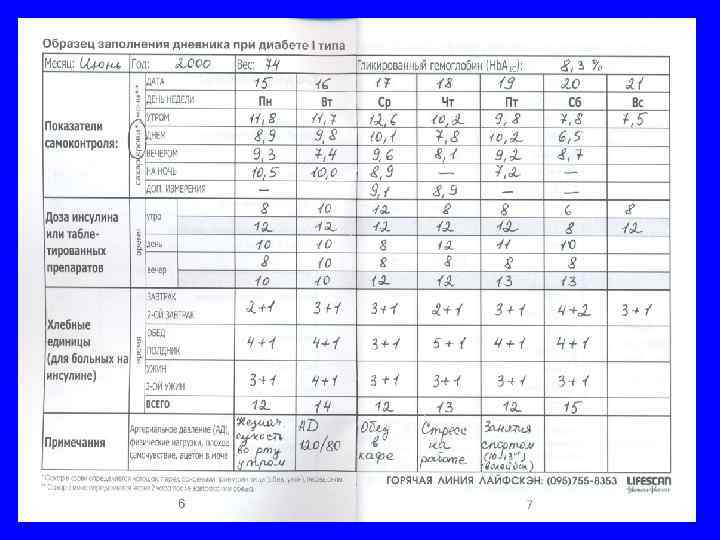 Образец заполнения дневника при диабете I типа
Месяц: Июнь Год: 2000 Вес: 74 Гликированный гемоглобин (HbA1C): 8,3 %
ДАТА 15 16 17 18 19 20 21
ДЕНЬ НЕДЕЛИ Пн Вт Ср Чт Пт Сб Вс
Показатели самоконтроля:
УТРОМ 11,8 11,7 12,6 10,2 9,8 7,8 7,5
ДНЕМ 8,9 9,8 10,1 7,8 10,2 6,5
ВЕЧЕРОМ 9,3 7,4 9,6 8,1 9,2 8,7
НА НОЧЬ 10,5 10,0 8,9 — 7,2 —
ДОП. ИЗМЕРЕНИЯ — 9,1 8,9 — —
Доза инсулина или табле-
тированных препаратов
время
утро 8 10 12 8 8 6 8
12 12 12 12 12 8 12
день 10 10 8 12 11 10
вечер 8 10 8 8 8 8
10 10 12 12 13 13
Хлебные единицы (для больных на инсулине)
время
ЗАВТРАК
2-ОЙ ЗАВТРАК 2+1 3+1 3+1 2+1 3+1 4+2 3+1
ОБЕД
ПОЛДНИК 4+1 4+1 3+1 5+1 4+1 4+1
УЖИН
2-ОЙ УЖИН 3+1 4+1 3+1 3+1 3+1 3+1
ВСЕГО 12 14 12 13 12 15
Примечания
Артериальное давление (АД),
физические нагрузки, плохое
самочувствие, ацетон в моче
сухость во рту утром
AD 120/80
Обед в кафе
Стресс на работе
Занятия спортом
(волейбол)
ГОРЯЧАЯ ЛИНИЯ ЛАЙФСКЭН: (095)755-8353 LIFESCAN
6 7